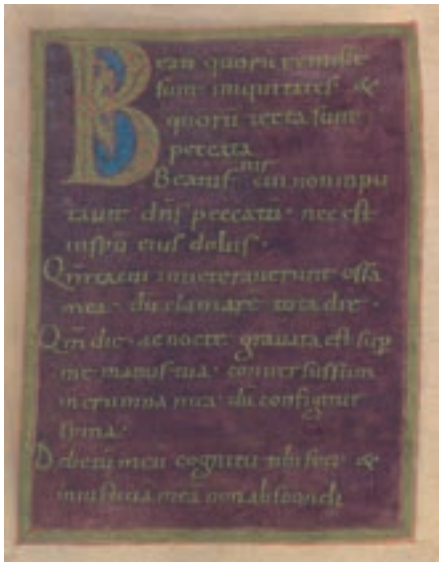 Beati quorū remisse
sunt iniquitates &
quorū tecta sunt
peccata
Beatus uir cui non inpu
tauit dn̄s peccatū nec est
in sp̄u eius dolus.
Qm̄ tacui inueterauerunt ossa
mea dū clamarē tota die.
Qm̄ die ac nocte grauata est sup
me manus tua conuersus sum
in erumna mea dū configitur
spina.
Delictū meū cognitū tibi feci &
iniustitiā meā non abscondi